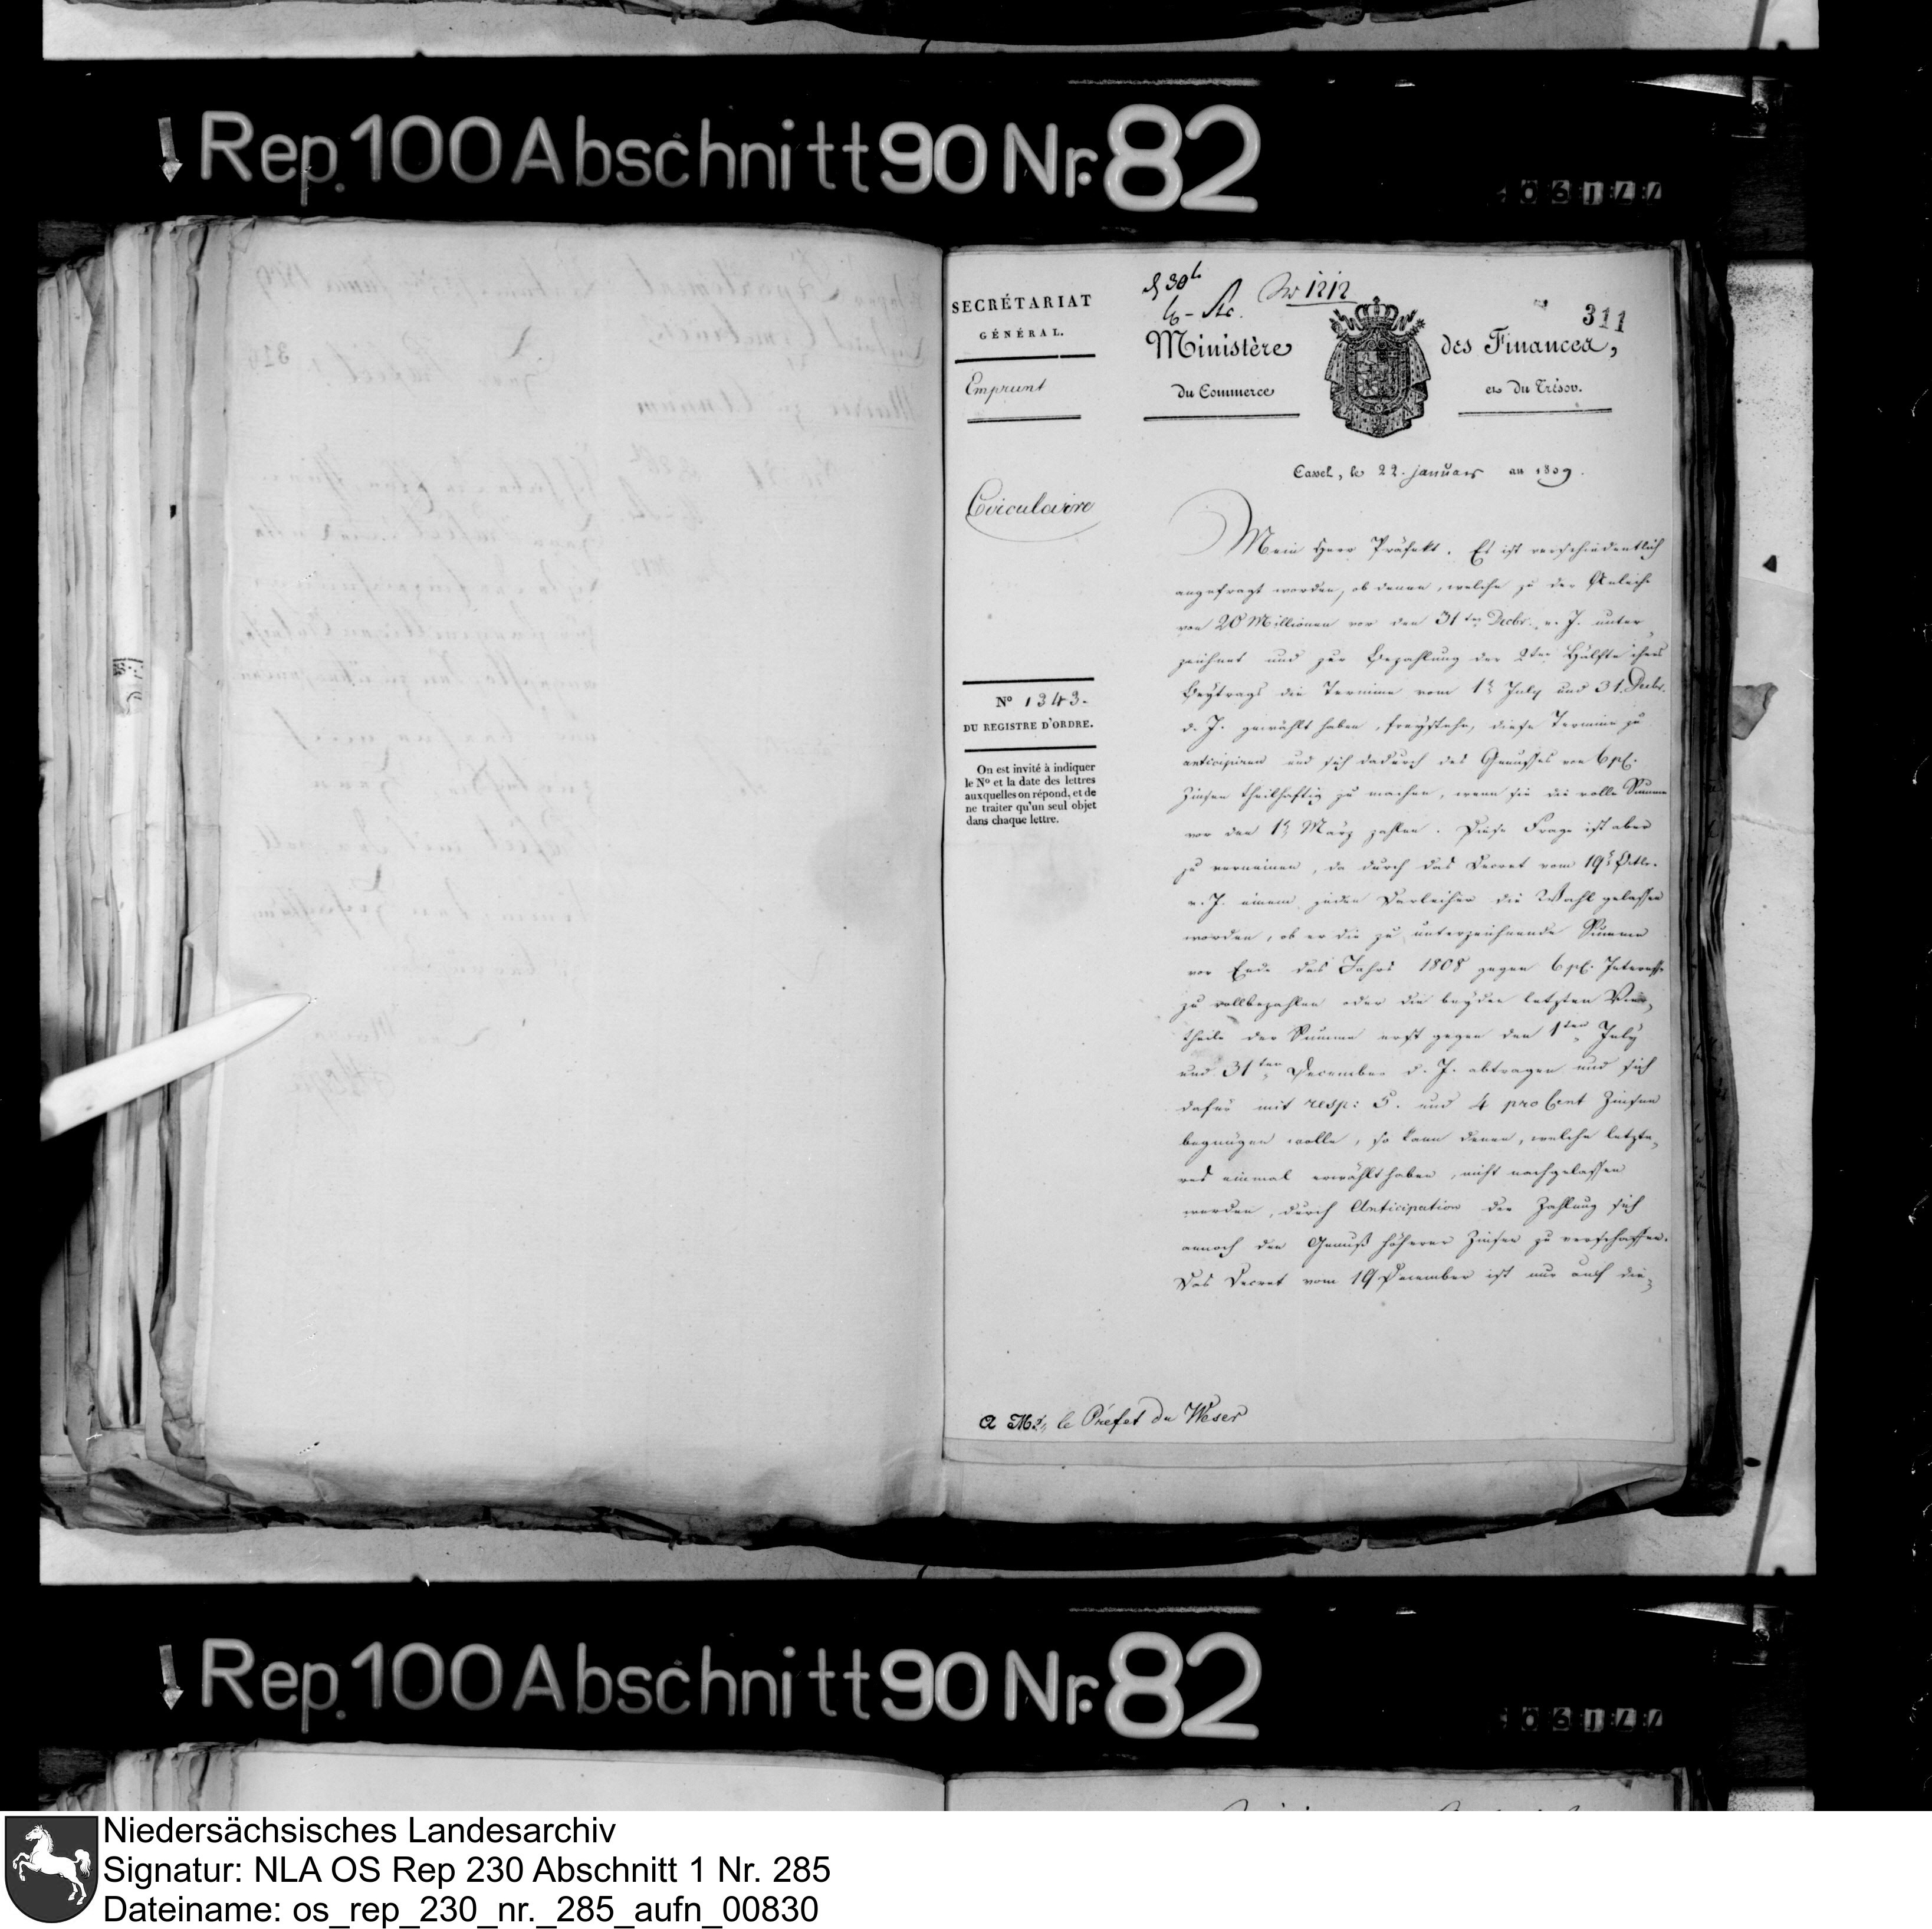 Rep. 100 Abschnitt 90 Nr. 82
SECRÉTARIAT
GÉNÉRAL.
Emprunt
No 1212
311
Ministère des Finances,
du Commerce et du Trésor.
Cassel, le 22. januars an 1809.
Circulaire
Mein Herr Präfekt. Es ist verschiedentlich
angefragt worden, ob denen, welche zu der Anleihe
von 20 Millionen vor den 31ten Decbr. v. J. unter
zeichnet und zur Bezahlung der 2ten Hälfte ihres
Beytrags die Termine vom 1n July und 31. Decbr.
d. J. gewählt haben, freystehe, diese Termine zu
anticipiren und sich dadurch des Genusses von 6 pC.
Zinsen theilhaftig zu machen, wenn sie die volle Summe
vor den 1n März zahlen. Diese Frage ist aber
zu verneinen, da durch das Decret vom 19n Octbr.
v. J. einem jeden Darleiher die Wahl gelassen
worden, ob er die zu unterzeichnende Summe
vor Ende des Jahrs 1808 gegen 6 pC. Interesse
zu vollbezahlen oder die beyden letzten Vier-
theile der Summe erst gegen den 1ten July
und 31ten December d. J. abtragen und sich
dafür mit resp: 5. und 4 pro Cent Zinsen
begnügen wolle, so kann denen, welche letzte-
res einmal erwählt haben, nicht nachgelassen
werden, durch Anticipation der Zahlung sich
annoch den Genuß höherer Zinsen zu verschaffen.
Das Decret vom 19 December ist nur auf die-
No 1343.
DU REGISTRE D'ORDRE.
On est invité à indiquer
le No et la date des lettres
auxquelles on répond, et de
ne traiter qu'un seul objet
dans chaque lettre.
A Mr. le Préfet du Weser
Rep. 100 Abschnitt 90 Nr. 82
Niedersächsisches Landesarchiv
Signatur: NLA OS Rep 230 Abschnitt 1 Nr. 285
Dateiname: os_rep_230_nr._285_aufn_00830